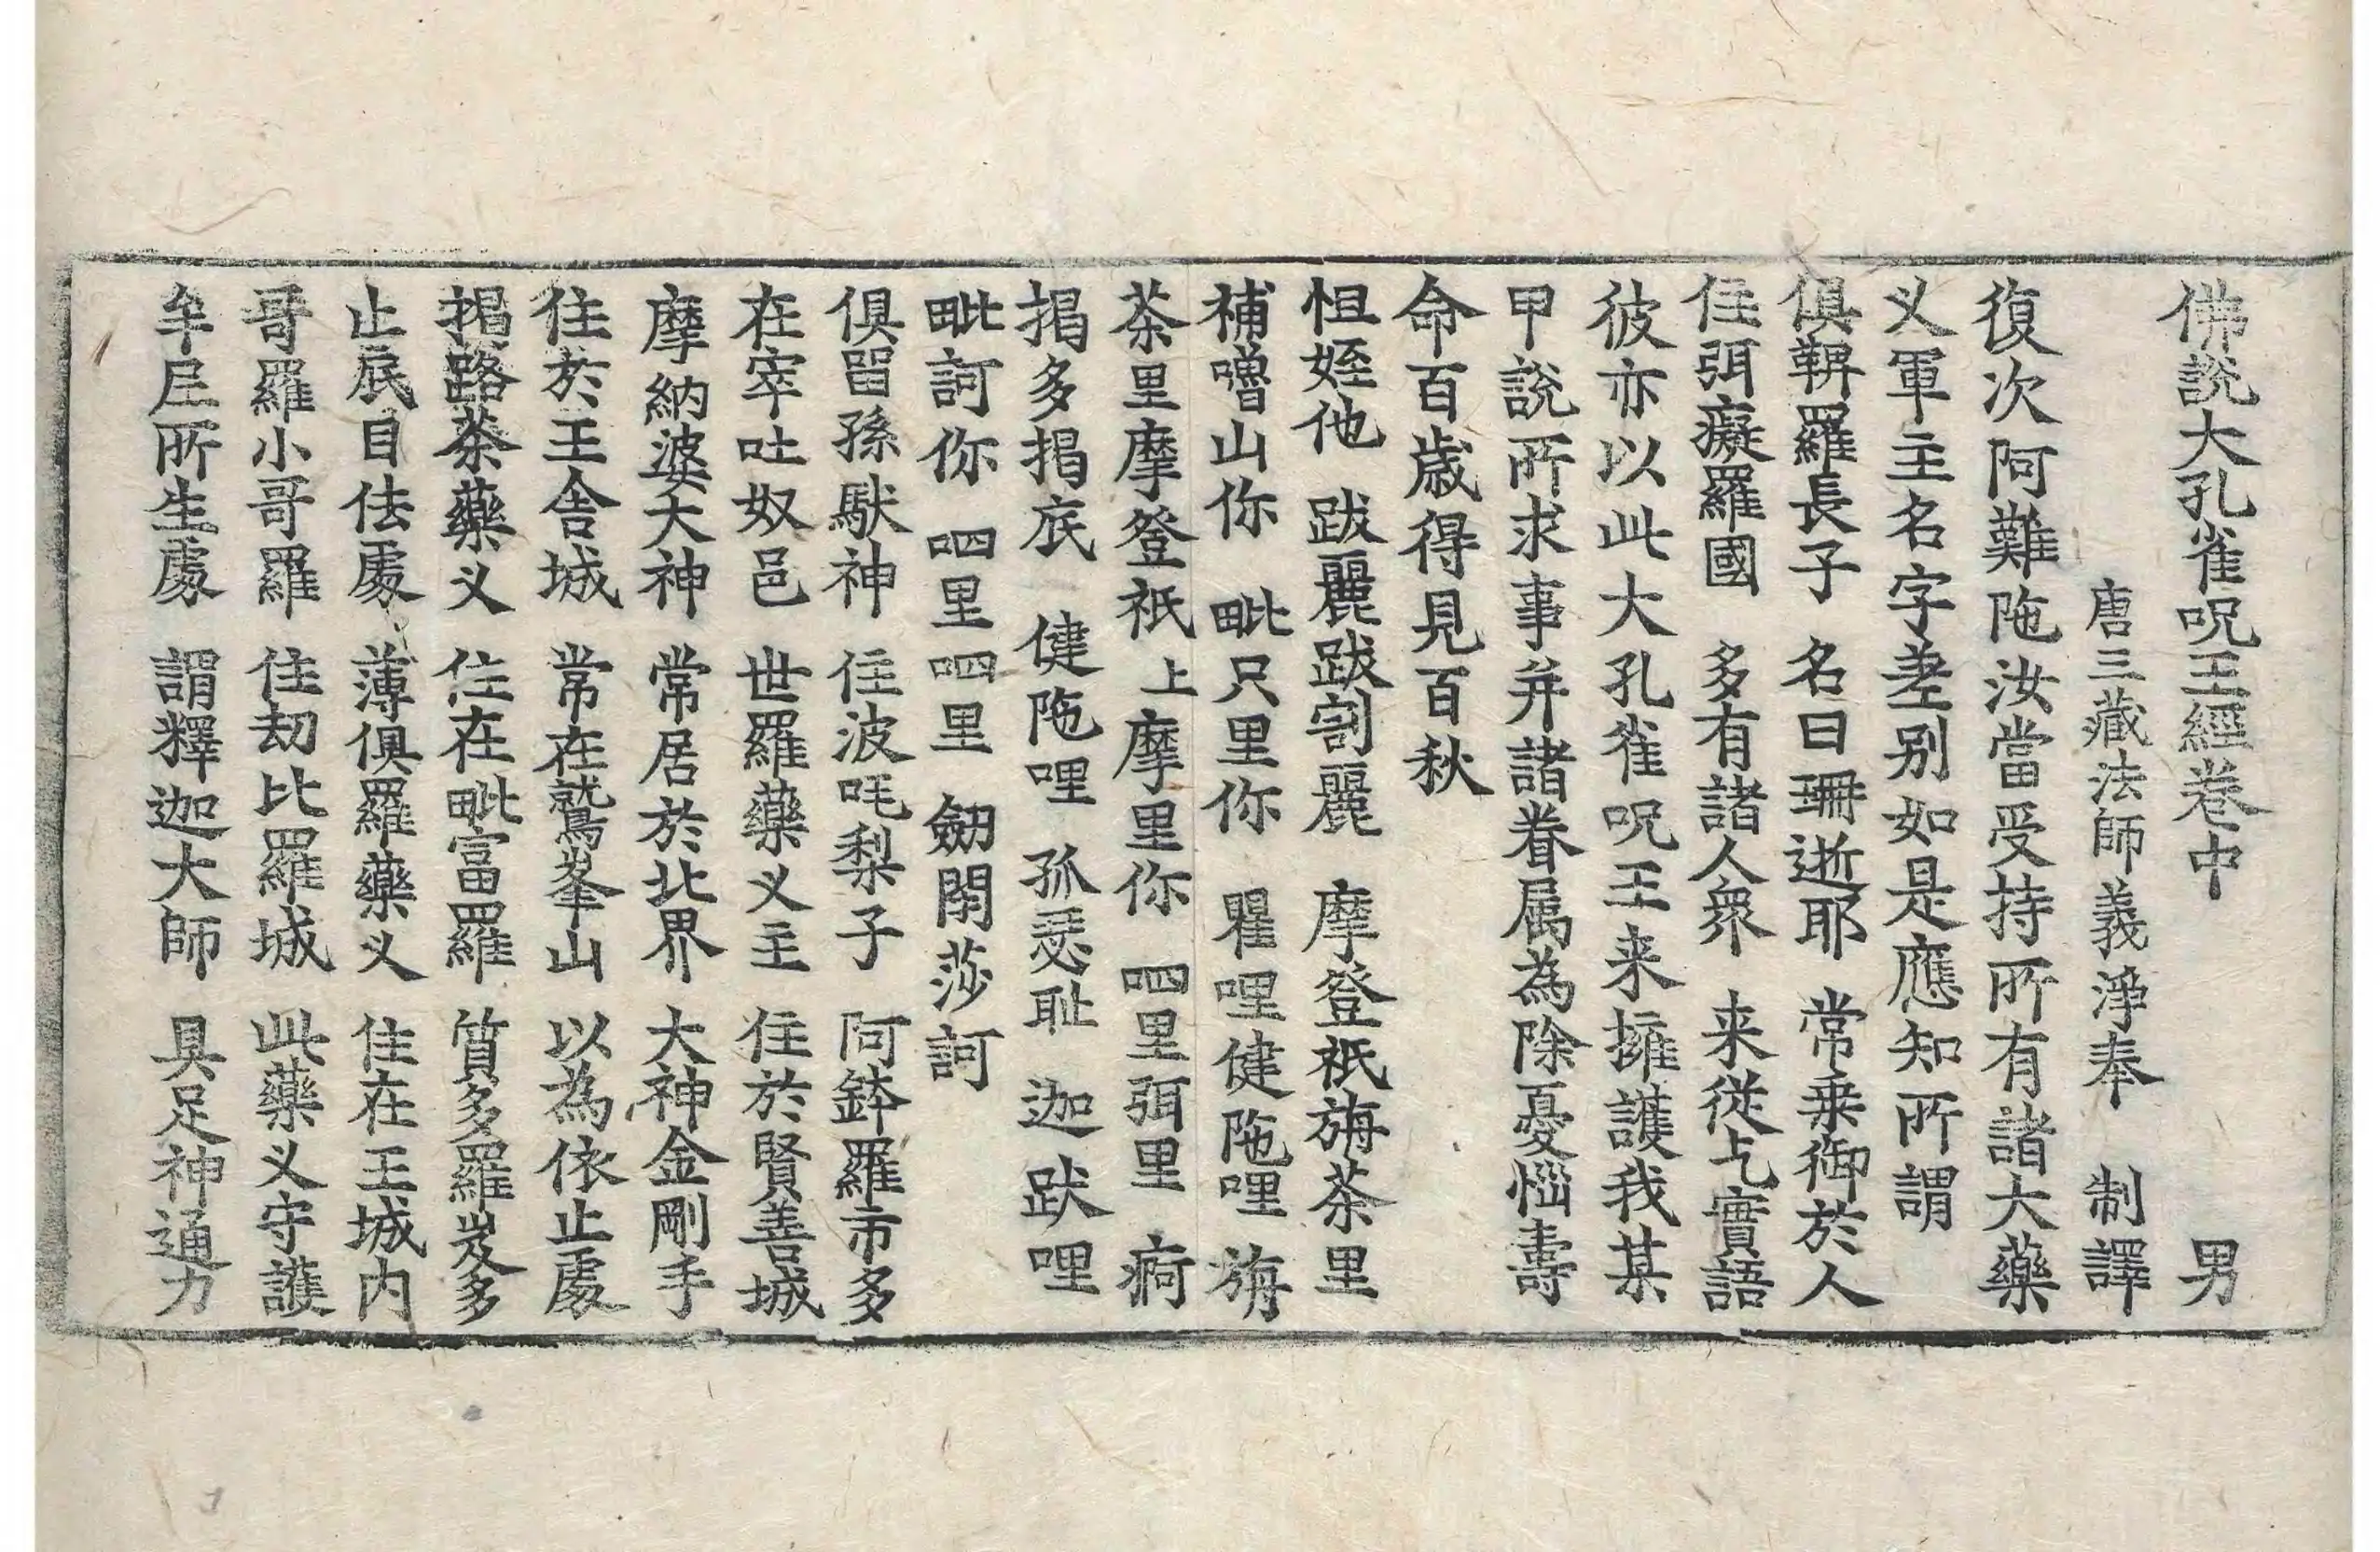 佛說大孔雀呪王經卷中 男
唐三藏法師義淨奉 制譯
復次阿難陁汝當受持所有諸大藥
义軍主名字差别如是應知所謂
俱鞞羅長子 名曰珊逝耶 常乗御於人
住弭癡羅國 多有諸人衆 来從乞實語
彼亦以此大孔雀呪王来擁護我某
甲說所求事并諸眷属為除憂惱壽
命百歳得見百秋
怛姪他 跋麗跋割麗 摩登祇旃荼里
補嚕山你 毗只里你 瞿哩健陁哩 旃
荼里摩登祇上摩里你 呬里弭里 痾
揭多揭底 健陁哩 孤瑟耻 迦趺哩
毗訶你 呬里呬里 劒閇莎訶
俱留孫䭾神 住波吒梨子 阿鉢羅市多
在窣吐奴邑 世羅藥义主 住於賢善城
摩納婆大神 常居於北界 大神金剛手
住於王舍城 常在鷲峯山 以為依止處
揭路荼藥义 住在毗富羅 質多羅岌多
止㡳目佉處 薄俱羅藥义 住在王城内
哥羅小哥羅 住劫比羅城 此藥义守護
牟尼所生處 謂釋迦大師 具足神通力